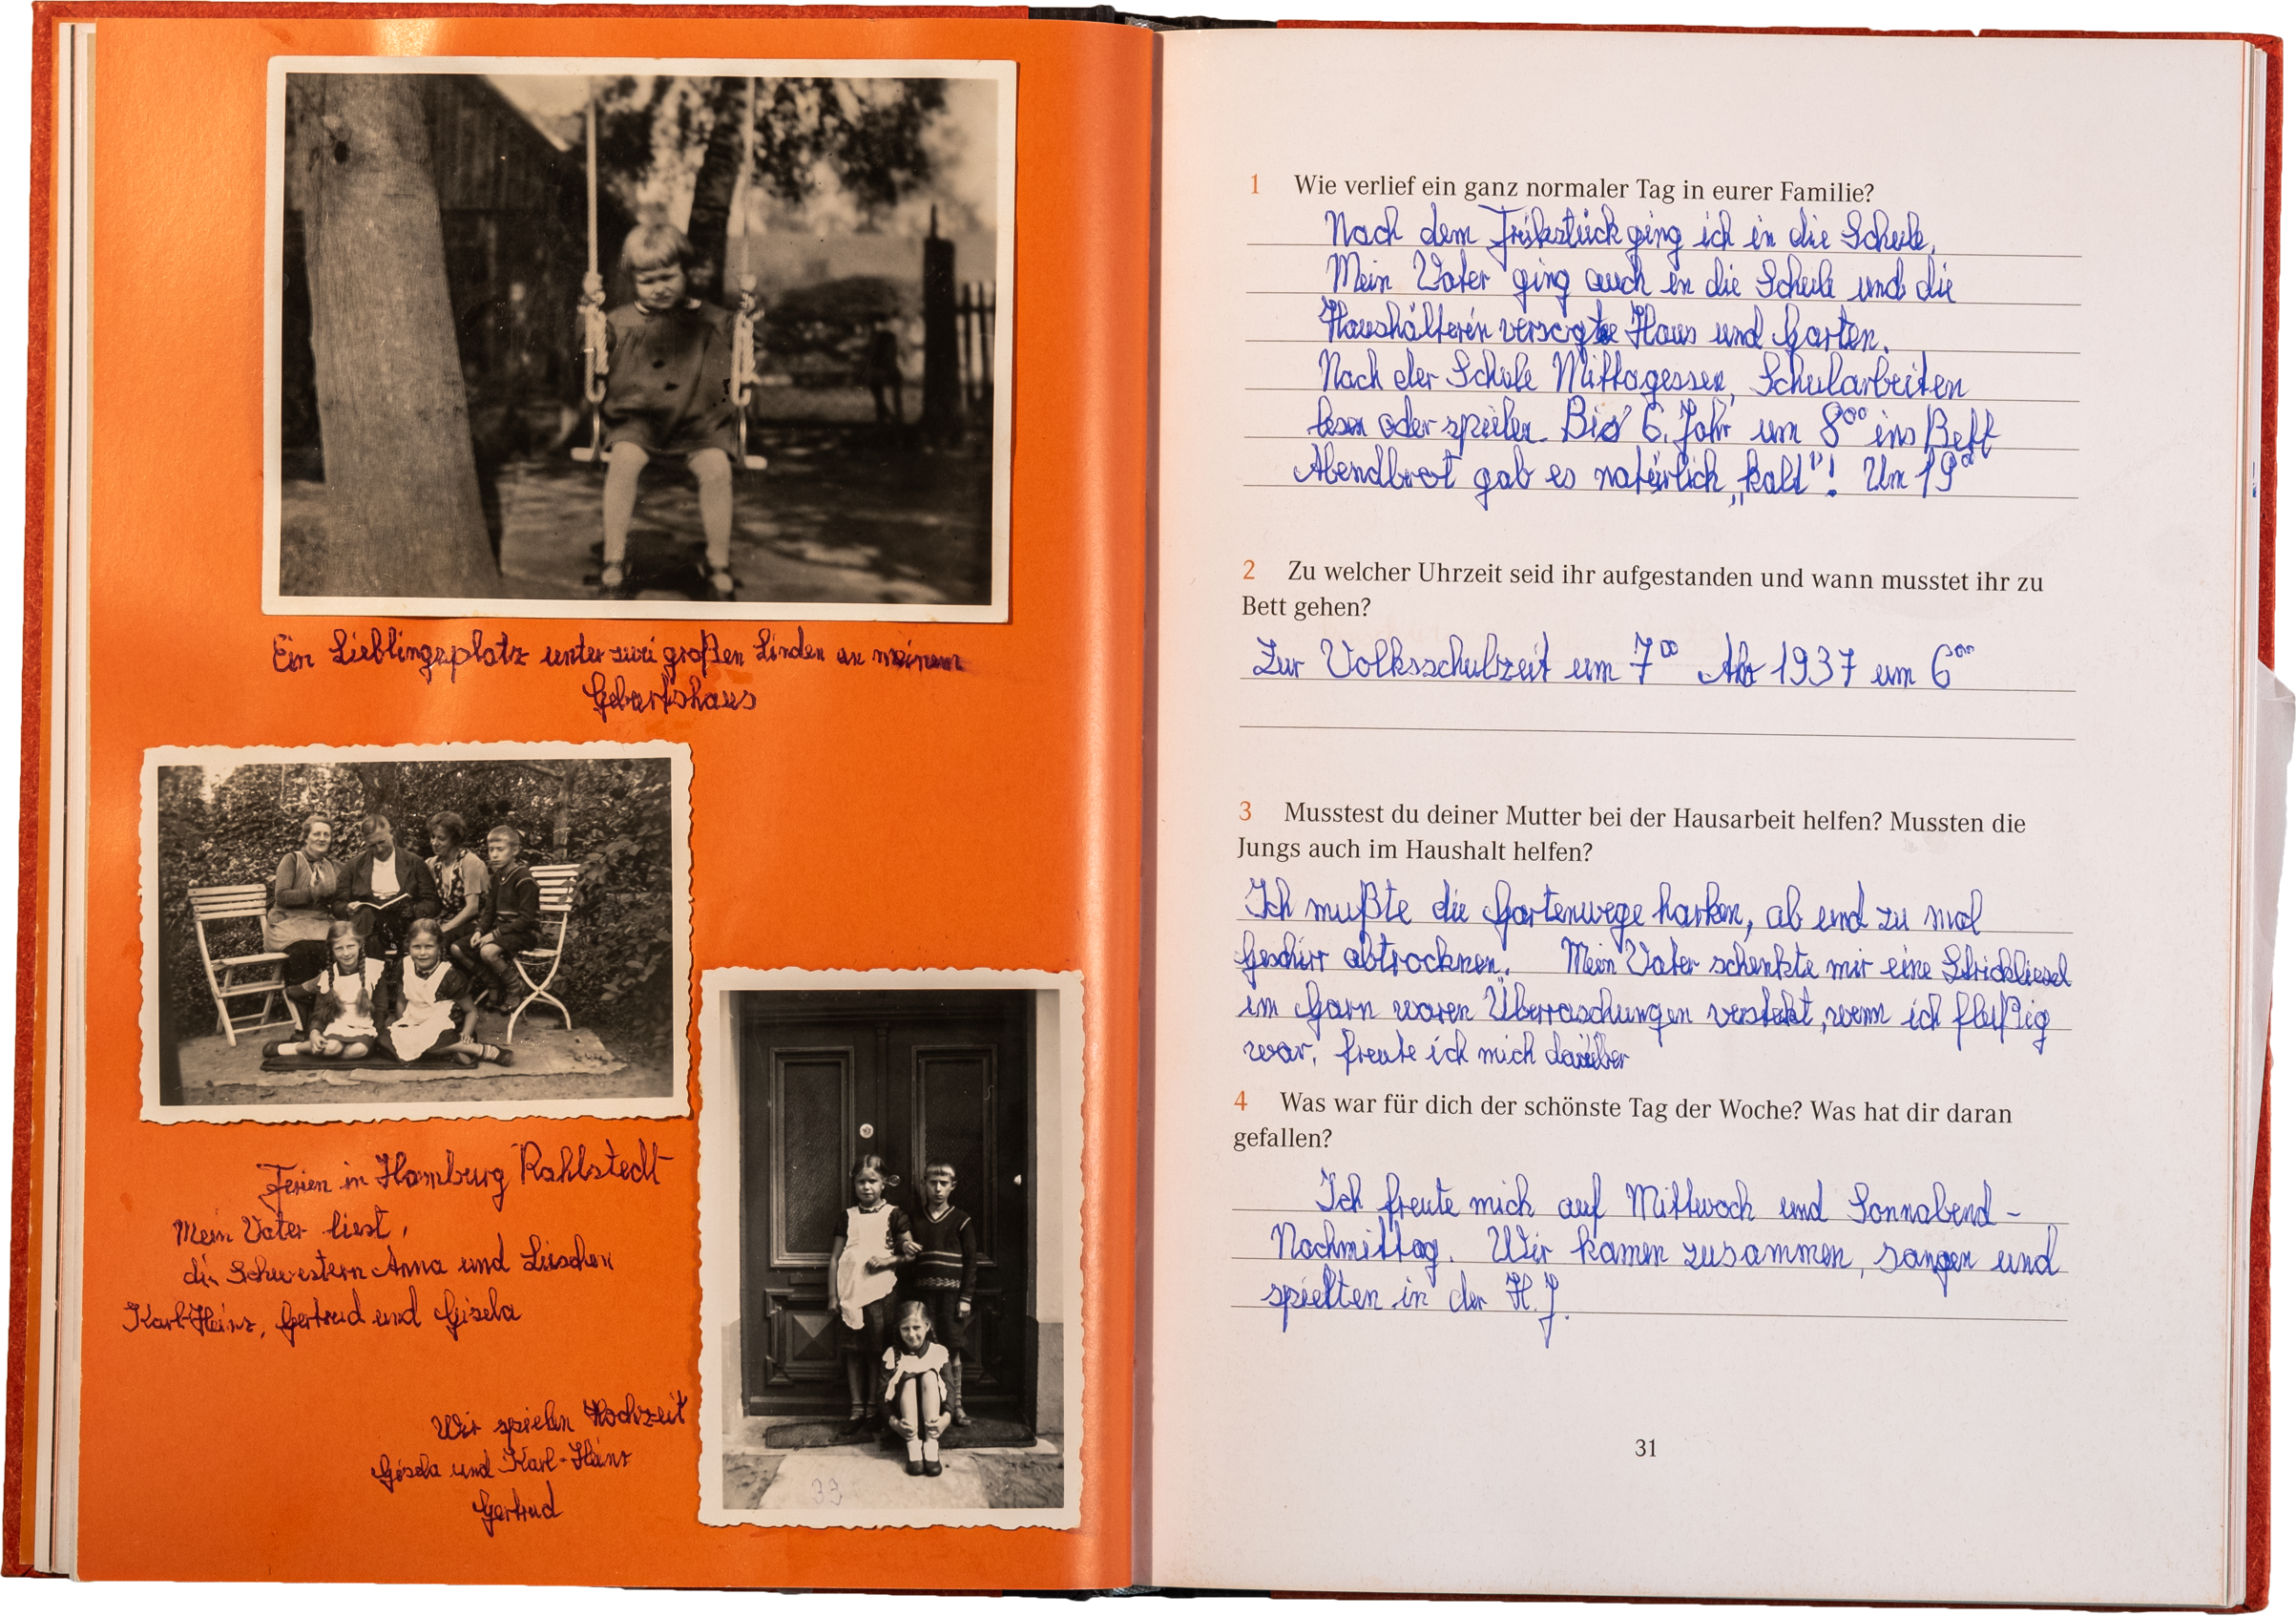 Ein Lieblingsplatz unter zwei großen Linden an meinem
Geburtshaus
Ferien in Hamburg Rahlstedt
Mein Vater liest,
die Schwestern Anna und Lieschen
Karl-Heinz, Gertrud und Gisela
Wir spielen Hochzeit
Gisela und Karl-Heinz
Gertrud
33
1 Wie verlief ein ganz normaler Tag in eurer Familie?
Nach dem Frühstück ging ich in die Schule.
Mein Vater ging auch in die Schule und die
Haushälterin versorgte Haus und Garten.
Nach der Schule Mittagessen, Schularbeiten
lesen oder spielen. Bis 6. Jahr um 8⁰⁰ ins Bett
Abendbrot gab es natürlich „kalt"! Um 19⁰⁰
2 Zu welcher Uhrzeit seid ihr aufgestanden und wann musstet ihr zu
Bett gehen?
Zur Volksschulzeit um 7⁰⁰ Ab 1937 um 6⁰⁰
3 Musstest du deiner Mutter bei der Hausarbeit helfen? Mussten die
Jungs auch im Haushalt helfen?
Ich mußte die Gartenwege harken, ab und zu mal
Geschirr abtrocknen. Mein Vater schenkte mir eine Strickliesel
im Garn waren Überraschungen versteckt, wenn ich fleißig
war, freute ich mich darüber
4 Was war für dich der schönste Tag der Woche? Was hat dir daran
gefallen?
Ich freute mich auf Mittwoch und Sonnabend-
Nachmittag. Wir kamen zusammen, sangen und
spielten in der H.J.
31